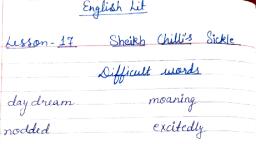 English Lit
Lesson - 17 Sheikh Chilli's Sickle
Difficult words
day dream moaning
nodded excitedly